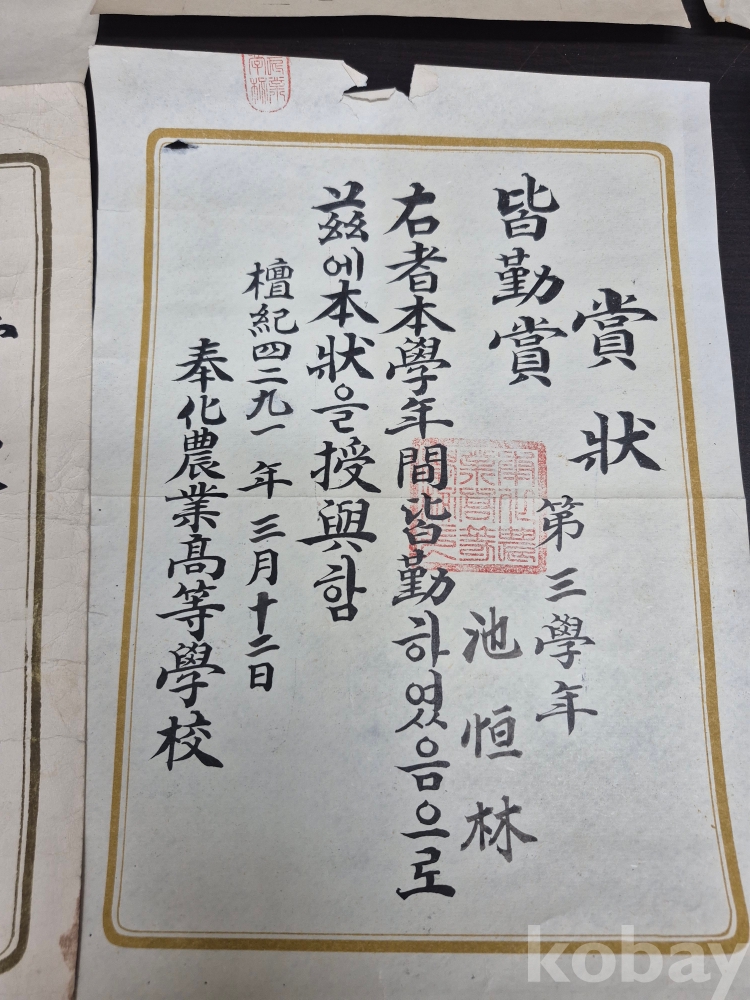 賞狀
第三學年
皆勤賞
池恒林
右者本學年間皆勤하였음으로
玆에本狀을授與함
檀紀四二九一年三月十二日
奉化農業高等學校
kobay